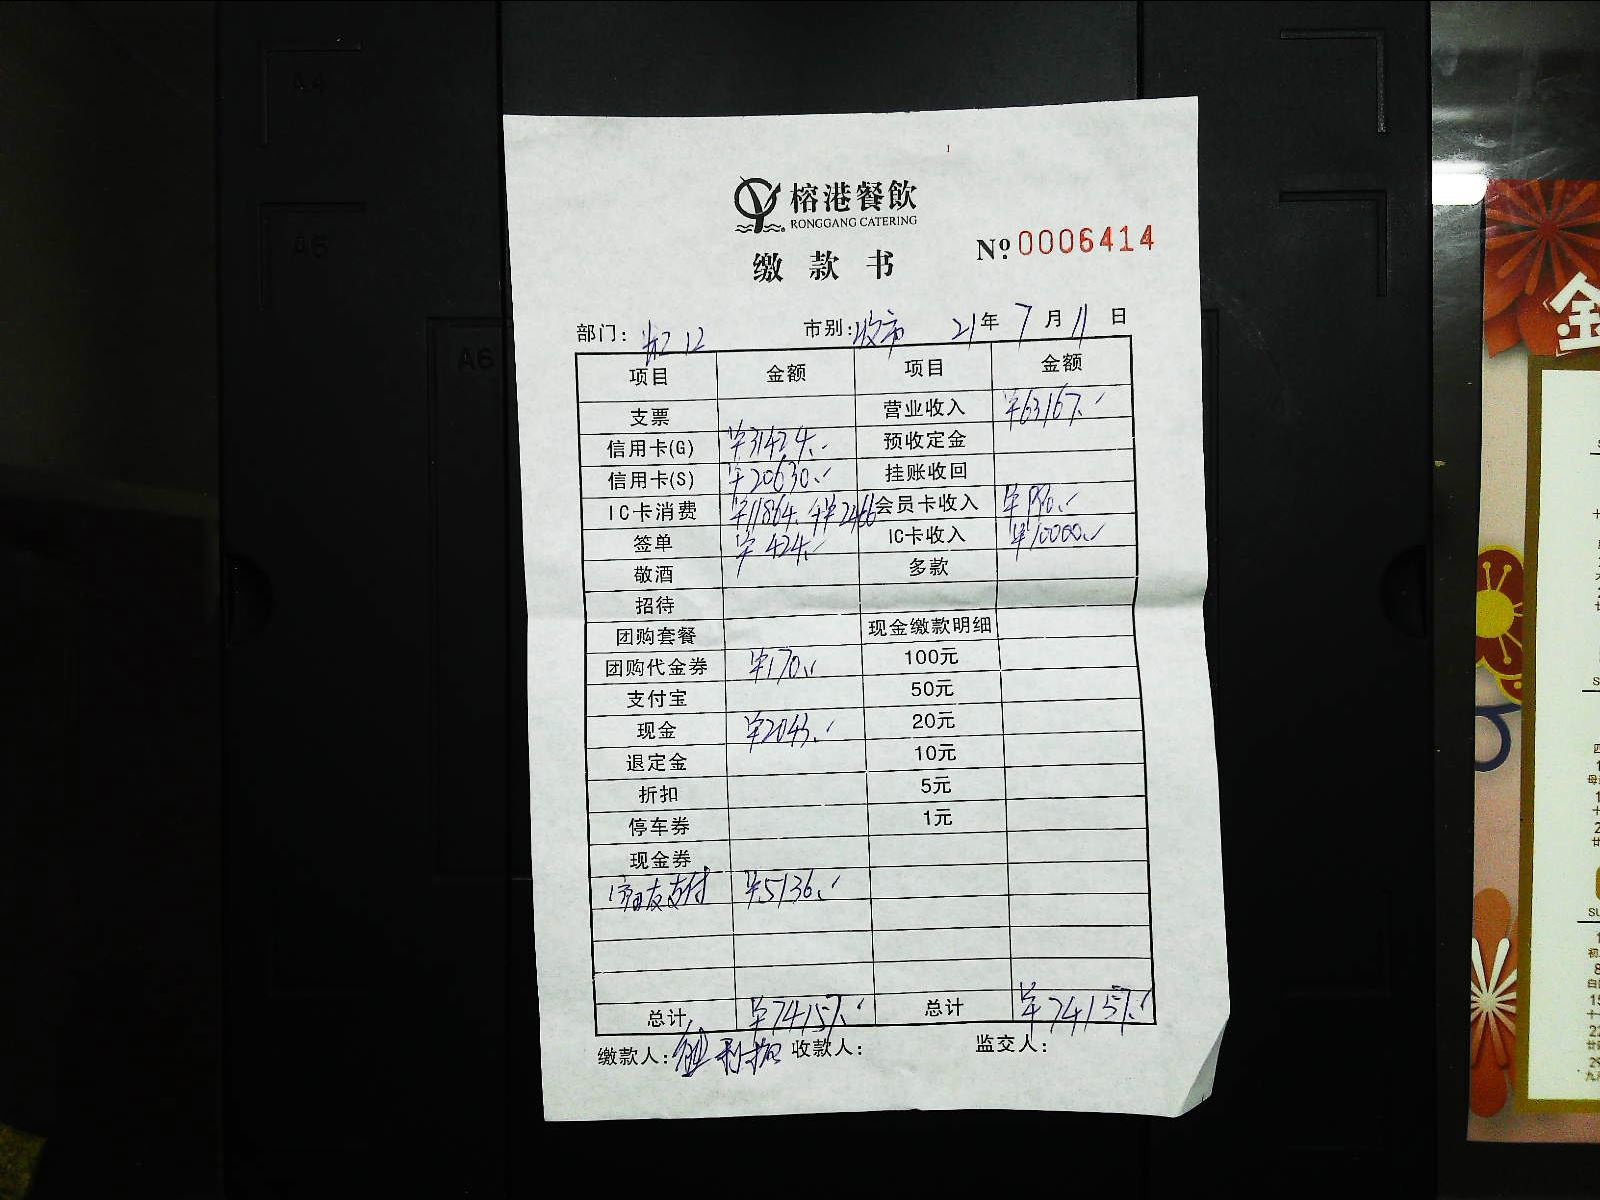 榕港餐飲
RONGGANG CATERING
缴款书
Nº 0006414
部门: 市别:收市 21年 7月 11日
项目 金额 项目 金额
支票 营业收入 ¥63167.
信用卡(G) ¥31424. 预收定金
信用卡(S) ¥20630. 挂账收回
IC卡消费 ¥11864. +¥2466 会员卡收入 ¥990.
签单 ¥424. IC卡收入 ¥10000.
敬酒 多款
招待
团购套餐 现金缴款明细
团购代金券 ¥170. 100元
支付宝 50元
现金 ¥2043. 20元
退定金 10元
折扣 5元
停车券 1元
现金券
支付 ¥5136.
总计 ¥74157. 总计 ¥74157.
缴款人: 收款人: 监交人:
A4
A5
A6
金